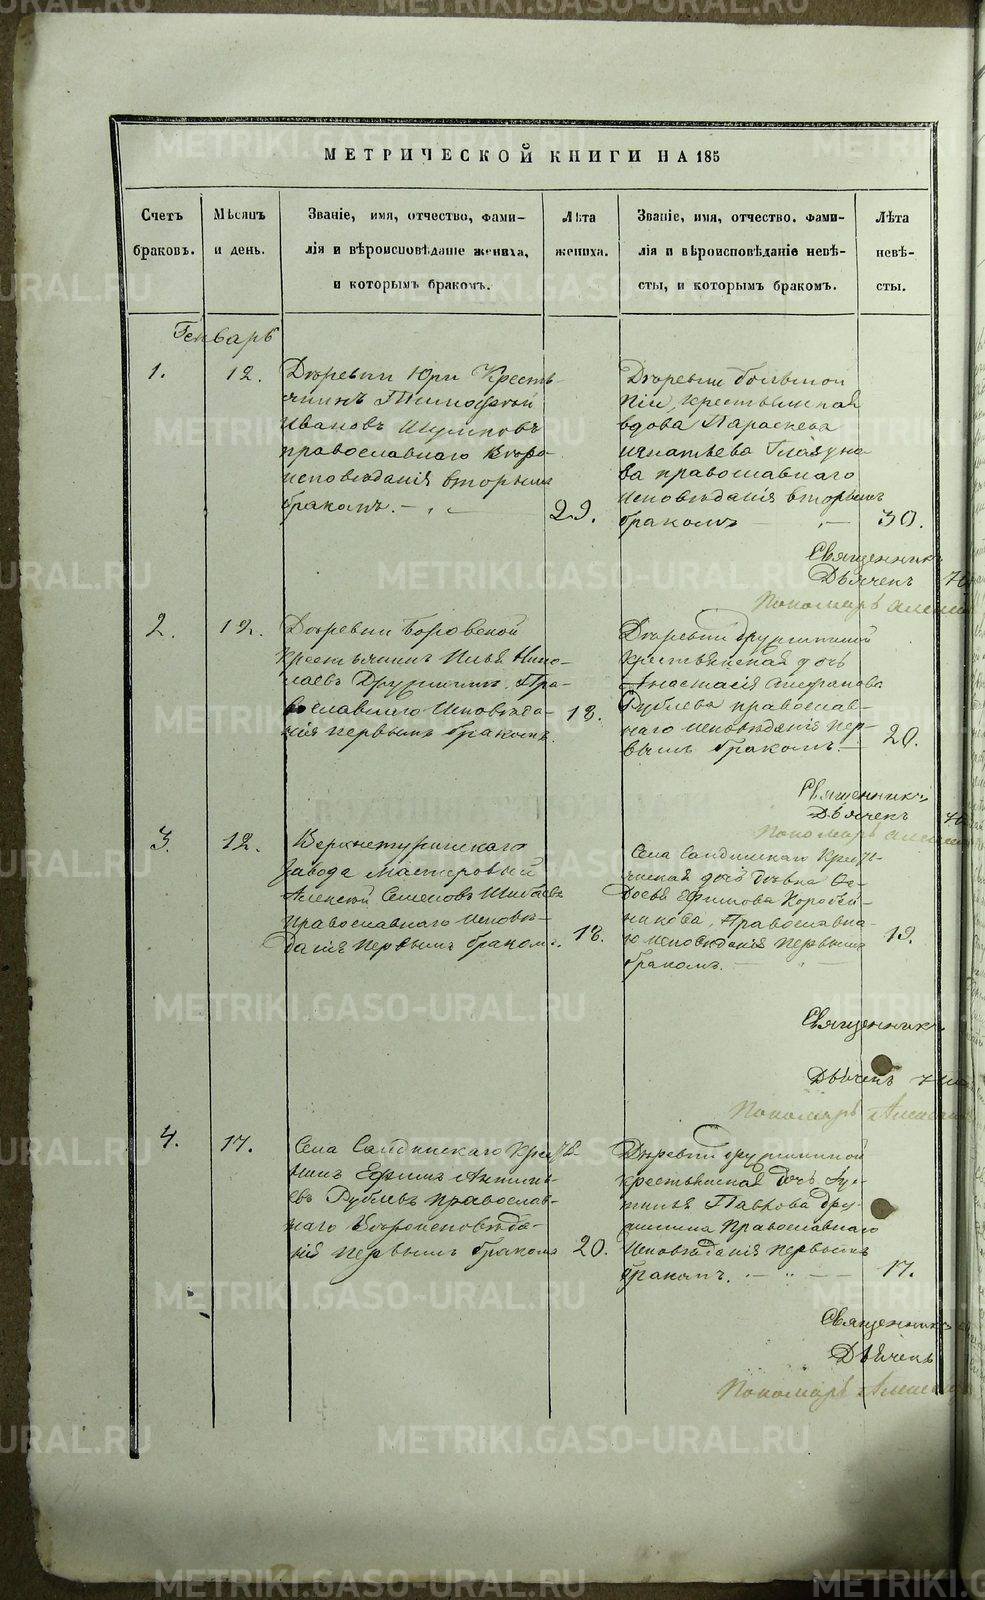 МЕТРИЧЕСКОЙ КНИГИ НА 185
Счетъ браковъ.
Мѣсяцъ и день.
Званіе, имя, отчество, фами-
лія и вѣроисповѣданіе жениха,
и которымъ бракомъ.
Лѣта жениха.
Званіе, имя, отчество. фами-
лія и вѣроисповѣданіе невѣ-
сты, и которымъ бракомъ.
Лѣта невѣ-
сты.
Генварь
1.
12.
Деревни Юри Кресть-
янинъ Тимофей
Ивановъ
православнаго Вѣро-
исповѣданія вторымъ
бракомъ.
29.
Деревни большой
крестьянская
вдова Параскева
Игнатьева Глазуно-
ва православнаго
исповѣданія вторымъ
бракомъ
30.
Священникъ
Дьячекъ
Пономарь Алексей
2.
12.
Деревни Боровской
крестьянинъ Илья Нико-
лаевъ Дружининъ Пра-
вославнаго Исповѣда-
нія первымъ бракомъ.
18.
Деревни дружининой
крестьянская дочь
Анастасія
Рублева православ-
наго исповѣданія пер-
вымъ бракомъ.
20.
Священникъ
Дьячекъ
Пономарь Алексей
3.
12.
Верхнетуринскаго
Завода Мастеровый
Алексей Семеновъ
Православнаго исповѣ-
данія первымъ бракомъ.
18.
Села Салдинскаго Кресть-
янская дочь дѣвка Ѳе-
досья Ефимова Коробей-
никова, Православна-
го исповѣданія первымъ
бракомъ.
19.
Священникъ
Дьячекъ
Пономарь Алексей
4.
17.
Села Салдинскаго Кресть-
янинъ Ефимъ
Рублевъ православ-
наго Вѣроисповѣда-
нія первымъ бракомъ
20.
Деревни дружининой
крестьянская дочь Ус-
тинья Павлова дру-
жинина Православнаго
Исповѣданія первымъ
бракомъ.
17.
Священникъ
Дьячекъ
Пономарь Алексей
METRIKI.GASO-URAL.RU